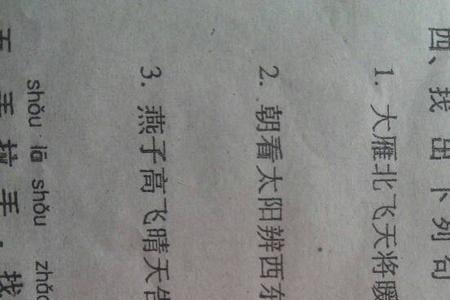 四、找出下列句
1. 大雁北飞天将暖
2. 朝看太阳辨西东
3. 燕子高飞晴天告
shǒu lā shǒu zhǎo
五、手拉手，找